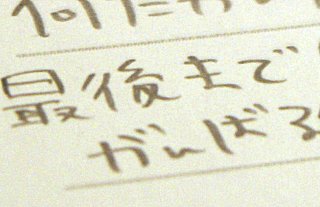 最後まで
がんばる